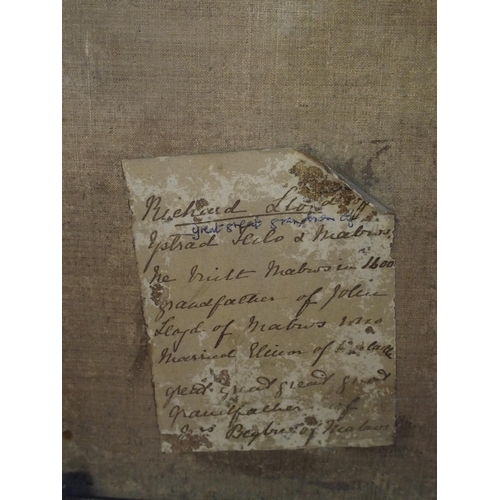 Richard Lloyd of
great great grandson of
Ystrad Teilo & Mabws
he built Mabws in 1600
grandfather of John
Lloyd of Mabws who
Married Elinor of
great great great great
Grandfather of
Mrs of Mabws